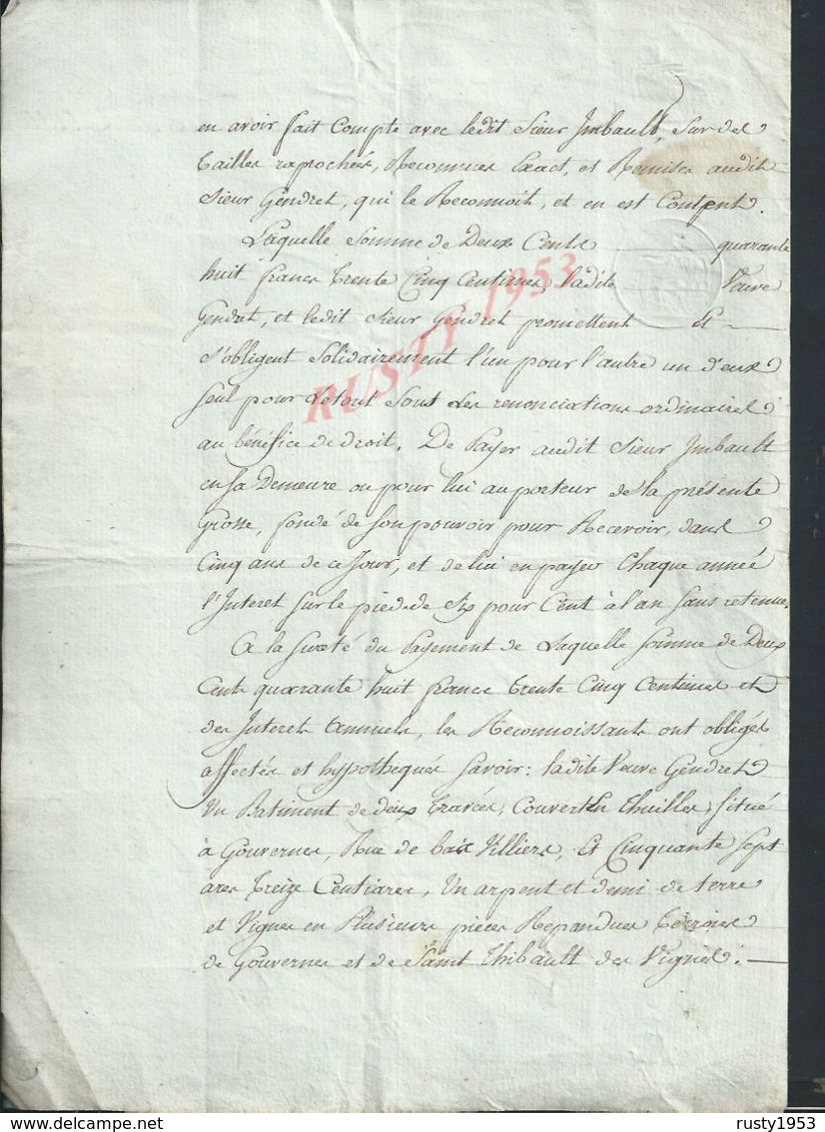 en avoir fait Compte avec ledit Sieur Imbault, Sur des
tailles raprochées, Reconnues Exact, et Remises audit
Sieur Gendret, qui le Reconnoit, et en est Content.
Laquelle Somme de Deux Cents quarante
huit francs trente Cinq Centimes, ladite Veuve
Gendret, et ledit Sieur Gendret promettent Et
S'obligent Solidairement l'un pour l'autre un d'eux
Seul pour letout Sous Les renonciations ordinaires
au bénéfice de droit. De Payer audit Sieur Imbault
en Sa Demeure ou pour lui au porteur de la présente
Grosse, fondé de Son pouvoir pour Recevoir, dans
Cinq ans de ce Jour, et de lui en payer Chaque année
l'Interet Sur le pied de Six pour Cent à l'an Sans retenue.
A la Sureté du Payement de Laquelle Somme de Deux
Cents quarante huit francs trente Cinq Centimes et
des Interets Annuels, les Reconnoissants ont obligés
affectés et hypothéqués Savoir: ladite Veuve Gendret
Un Batiment de deux travées, Couvert En thuilles, Situé
à Gouvernes, Rue de bas Villiers, Et Cinquante Sept
ares treize Centiares, Un arpent et demi de terre
et Vignes en Plusieurs pièces Repandues terroirs
de Gouvernes et de Saint thibault des Vignes.
RUSTY 1953
delcampe.net
rusty1953